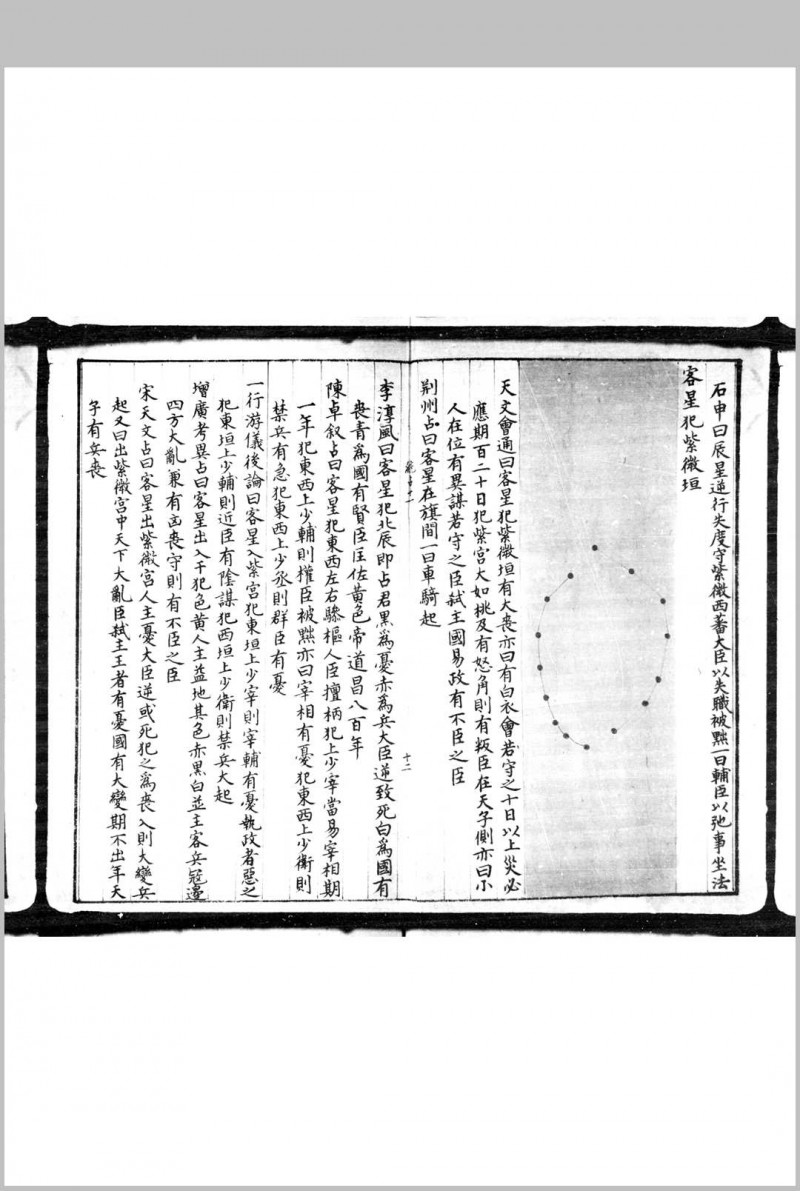 石申曰辰星逆行失度守紫微西蕃大臣以失職被黜一曰輔臣以弛事坐法
客星犯紫微垣
天文會通曰客星犯紫微垣有大喪亦曰有白衣會若守之十日以上災必
應期百二十日犯紫宮大如桃及有怒角則有叛臣在天子側亦曰小
人在位有異謀若守之臣弑主國易政有不臣之臣
荆州占曰客星在旗間一曰車騎起
十二
李淳風曰客星犯北辰即占君黑為憂赤為兵大臣逆致死白為國有
喪青為國有賢臣匡佐黃色帝道昌八百年
陳卓叙占曰客星犯東西左右驂樞人臣擅柄犯上少宰當易宰相期
一年犯東西上少輔則權臣被黜亦曰宰相有憂犯東西上少衛則
禁兵有急犯東西上少丞則群臣有憂
一行游儀後論曰客星入紫宮犯東垣上少宰則宰輔有憂執政者惡之
犯東垣上少輔則近臣有陰謀犯西垣上少衛則禁兵大起
增廣考異占曰客星出入干犯色黃人主益地其色赤黑白並主客兵冦邊
四方大亂兼有凶喪守則有不臣之臣
宋天文占曰客星出紫微宮人主憂大臣逆或死犯之為喪入則大變兵
起又曰出紫微宮中天下大亂臣弑主王者有憂國有大變期不出年天
子有兵喪